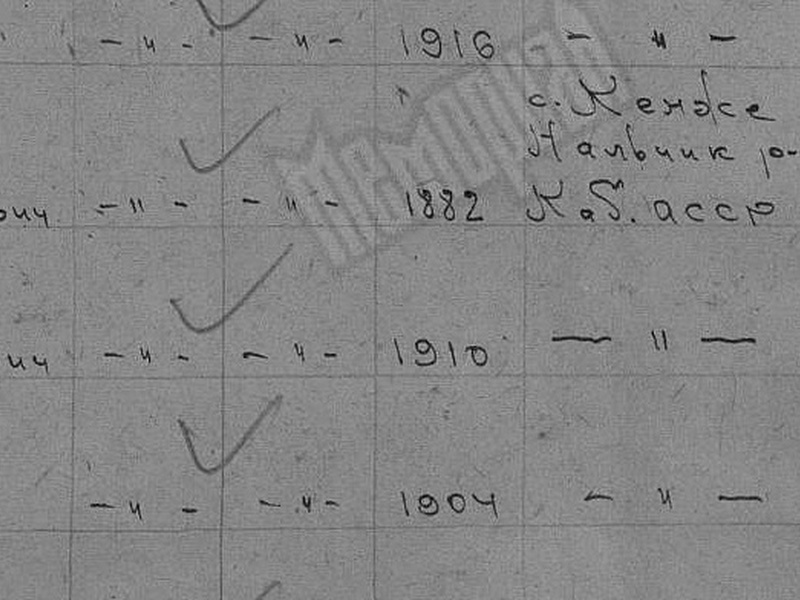 - " - - " - 1916 - " -
с. Кенже
Нальчик р-
ович - " - - " - 1882 Каб. асср
ич - " - - " - 1910 - " -
- " - - " - 1904 - " -
Мемориал